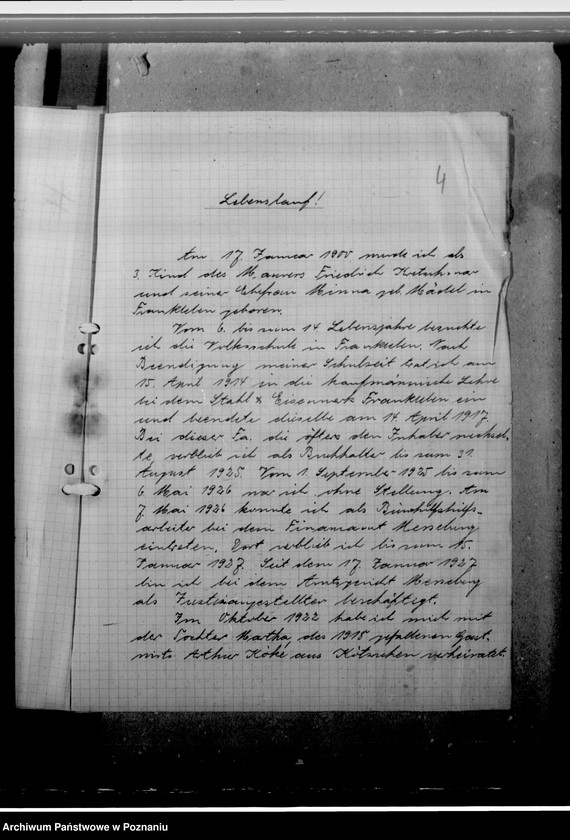 4
Lebenslauf!
Am 17. Januar 1900 wurde ich als
3. Kind des Maurers Friedrich
und seiner Ehefrau Minna geb. Mädel in
Frankleben geboren.
Vom 6. bis zum 14. Lebensjahre besuchte
ich die Volksschule in Frankleben. Nach
Beendigung meiner Schulzeit trat ich am
15. April 1914 in die kaufmännische Lehre
bei dem Stahl & Eisenwerk Frankleben ein
und beendete dieselbe am 14. April 1917.
Bei dieser Fa. die öfters den Inhaber wechsel-
te, verblieb ich als Buchhalter bis zum 31.
August 1925. Vom 1. September 1925 bis zum
6. Mai 1926 war ich ohne Stellung. Am
7. Mai 1926 konnte ich als
arbeiter bei dem Finanzamt Merseburg
eintreten. Dort verblieb ich bis zum 15.
Januar 1927. Seit dem 17. Januar 1927
bin ich bei dem Amtsgericht Merseburg
als Justizangestellter beschäftigt.
Im Oktober 1922 habe ich mich mit
der Tochter des 1915 gefallenen Gast-
wirts Arthur aus Kötzschen verheiratet.
Archiwum Państwowe w Poznaniu